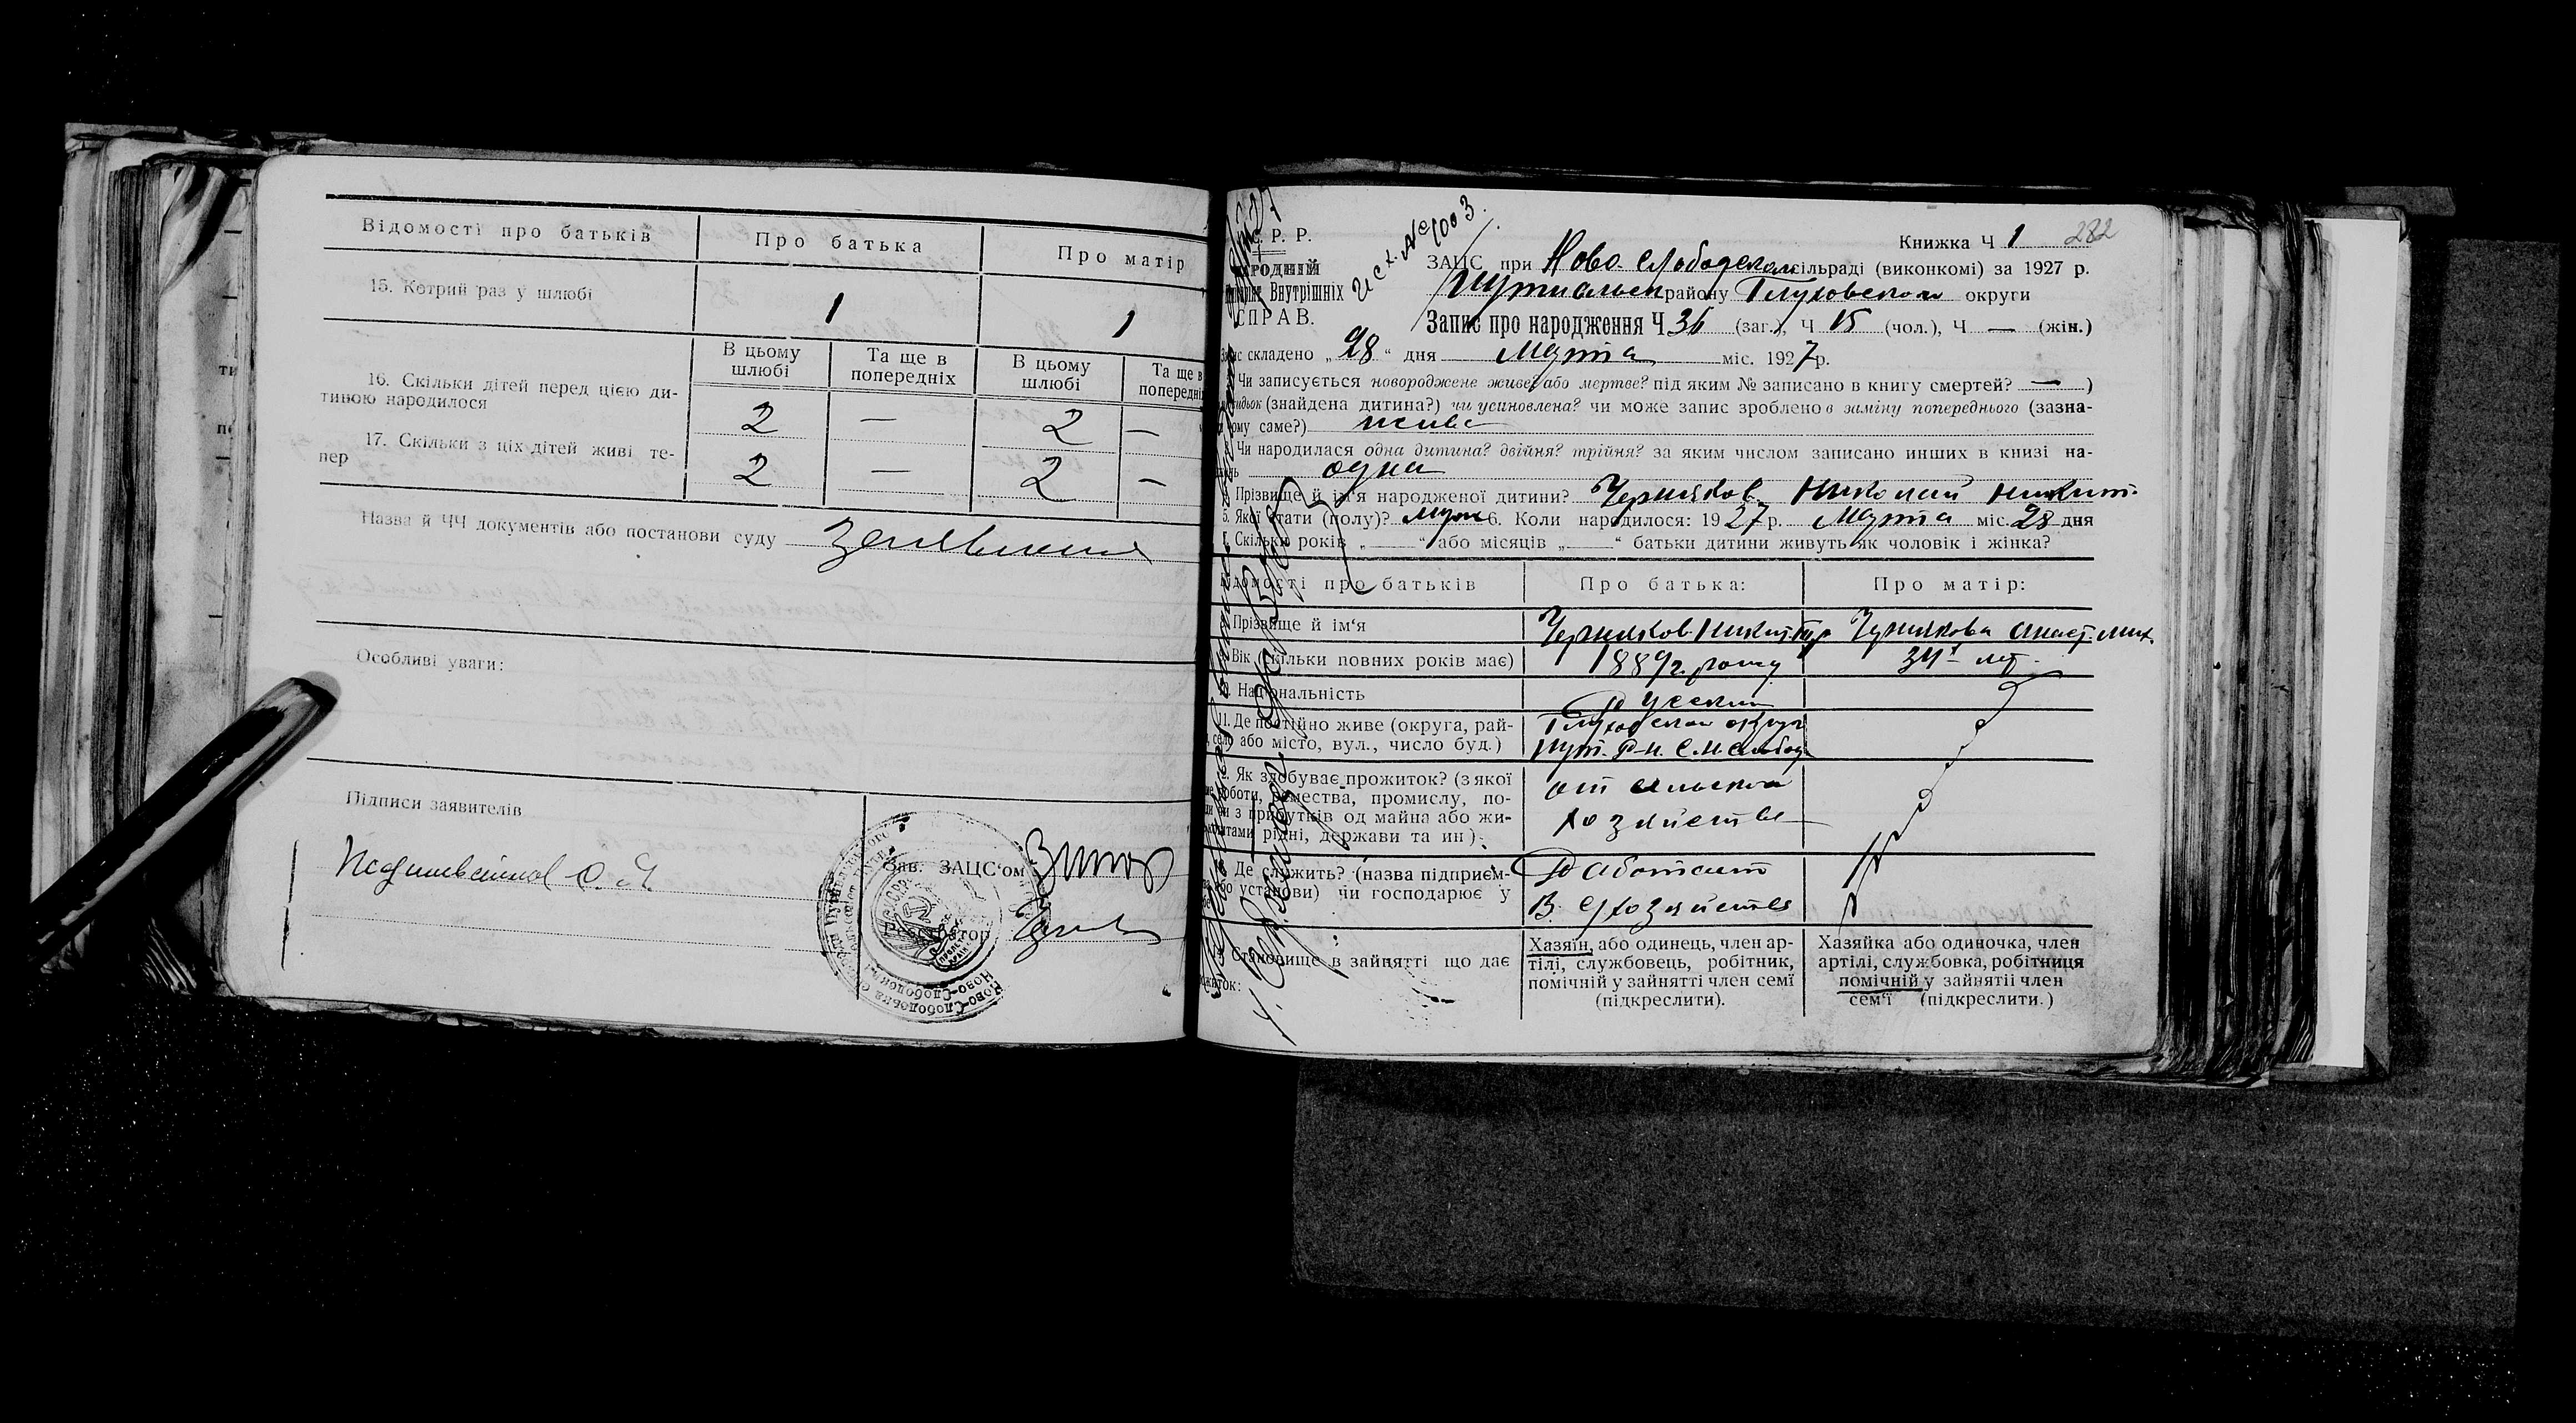 Відомості про батьків Про батька Про матір
15. Котрий раз у шлюбі 1 1
В цьому шлюбі Та ще в попередніх В цьому шлюбі Та ще в
16. Скільки дітей перед цією ди-
тиною народилося 2 — 2 —
17. Скільки з ціх дітей живі те-
пер 2 — 2 —
Назва й ЧЧ документів або постанови суду
Особливі уваги:
Підписи заявителів
Зав. ЗАЦС'ом
Реєстратор
С. Р. Р.
Внутрішніх
СПРАВ.
Исх. № 1003.
Книжка Ч 1 282
ЗАЦС при Ново-Слободском сільраді (виконкомі) за 1927 р.
району Глуховской округи
Запис про народження Ч 36 (заг.), Ч 15 (чол.), Ч — (жін.)
складено „28“ дня Марта міс. 1927 р.
Чи записується новороджене живе? або мертве? під яким № записано в книгу смертей? — )
(знайдена дитина?) чи усиновлена? чи може запис зроблено в заміну попереднього (зазна-
саме?) живе
Чи народилася одна дитина? двійня? трійня? за яким числом записано инших в книзі на-
одна
Прізвище й ім'я народженої дитини? Черняков Николай Никит.
5. Якої стати (полу)? муж 6. Коли народилося: 1927 р. Марта міс. 28 дня
Скільки років „——“ або місяців „——“ батьки дитини живуть як чоловік і жінка?
про батьків Про батька: Про матір:
Прізвище й ім'я Черняков Никит. Чернякова Анаст. Мих.
Вік (скільки повних років має) 1889 г. 34 лет.
Національність Русский
11. Де постійно живе (округа, рай-
село або місто, вул., число буд.) Глуховской округ
Пут. р-н. с. Н. Слобод
Як здобуває прожиток? (з якої
роботи, ремества, промислу, по-
з прибутків од майна або жи-
рідні, держави та ин). от сельского
хозяйства
Де служить? (назва підприєм-
або установи) чи господарює у Работает
в с/хозяйстве
Становище в зайнятті що дає
Хазяїн, або одинець, член ар-
тілі, службовець, робітник,
помічній у зайнятті член семї
(підкреслити).
Хазяйка або одиночка, член
артілі, службовка, робітниця
помічній у зайнятії член
сем'ї (підкреслити.)